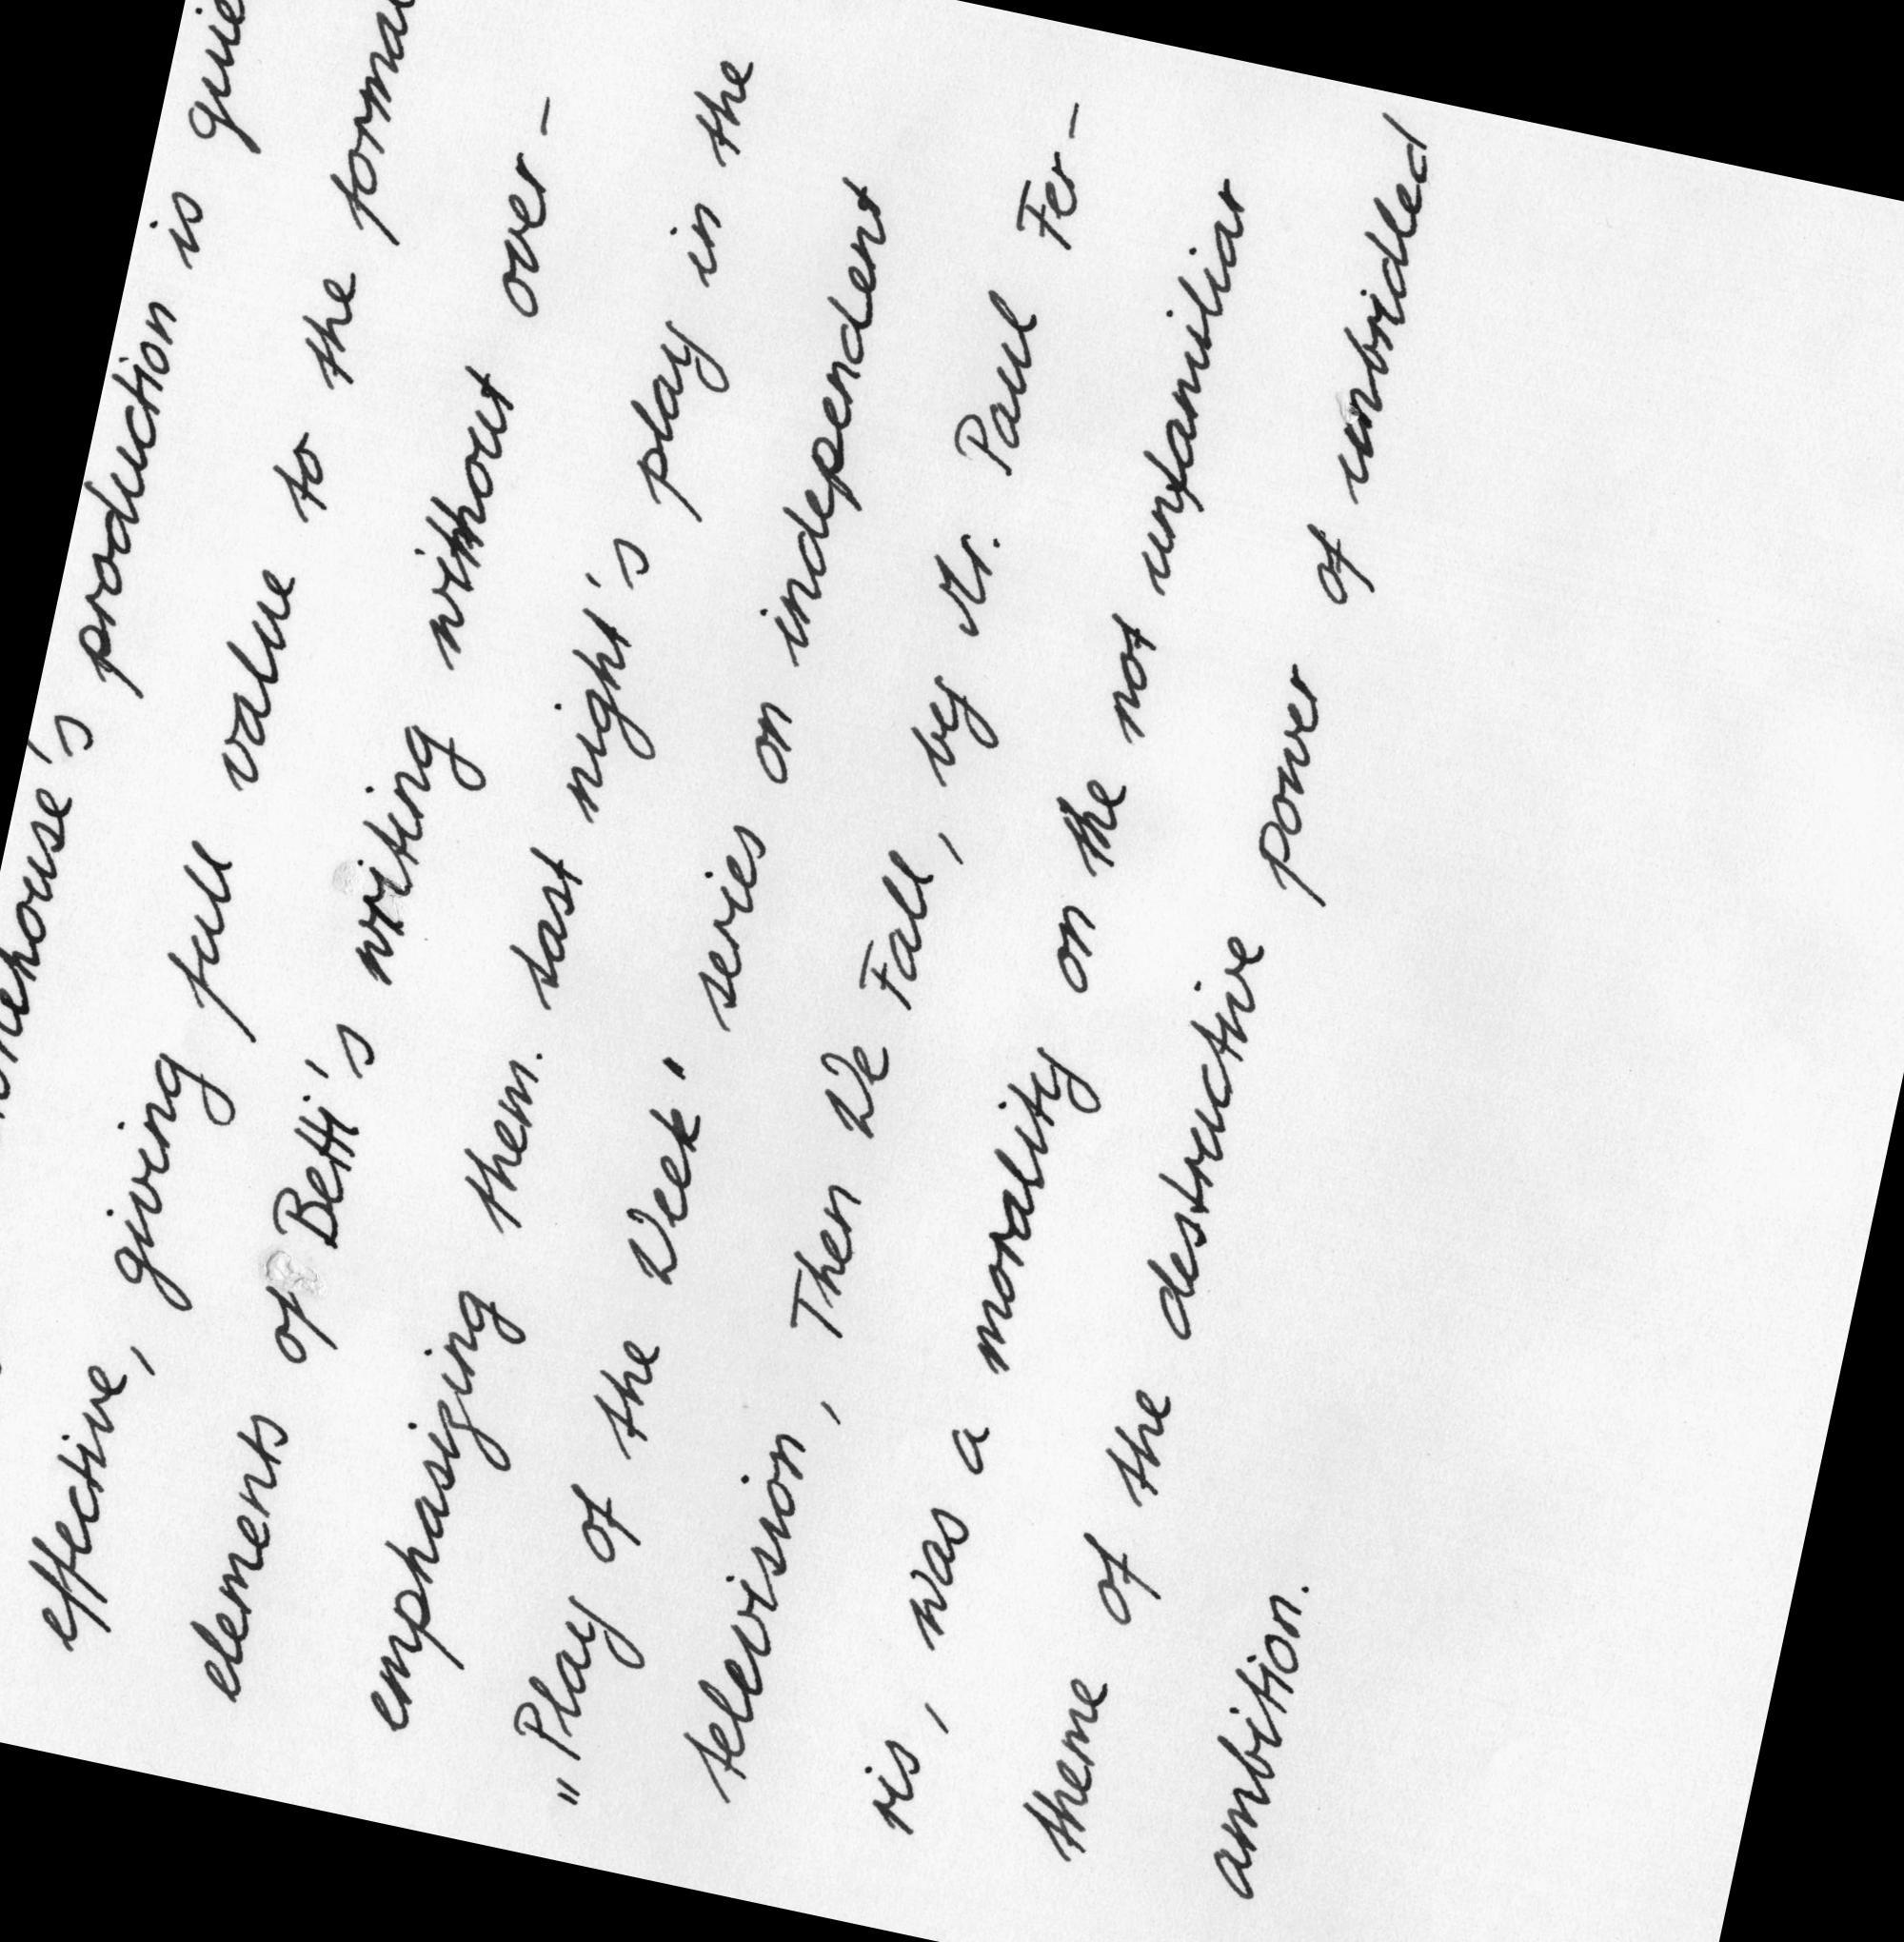 production is
effective, giving full value to the
elements of Betti's writing without over-
emphasizing them. Last night's play in the
"Play of the Week" series on independent
television, Then We Fall, by Mr. Paul Fer-
ris, was a morality on the not unfamiliar
theme of the destructive power of unbridled
ambition.